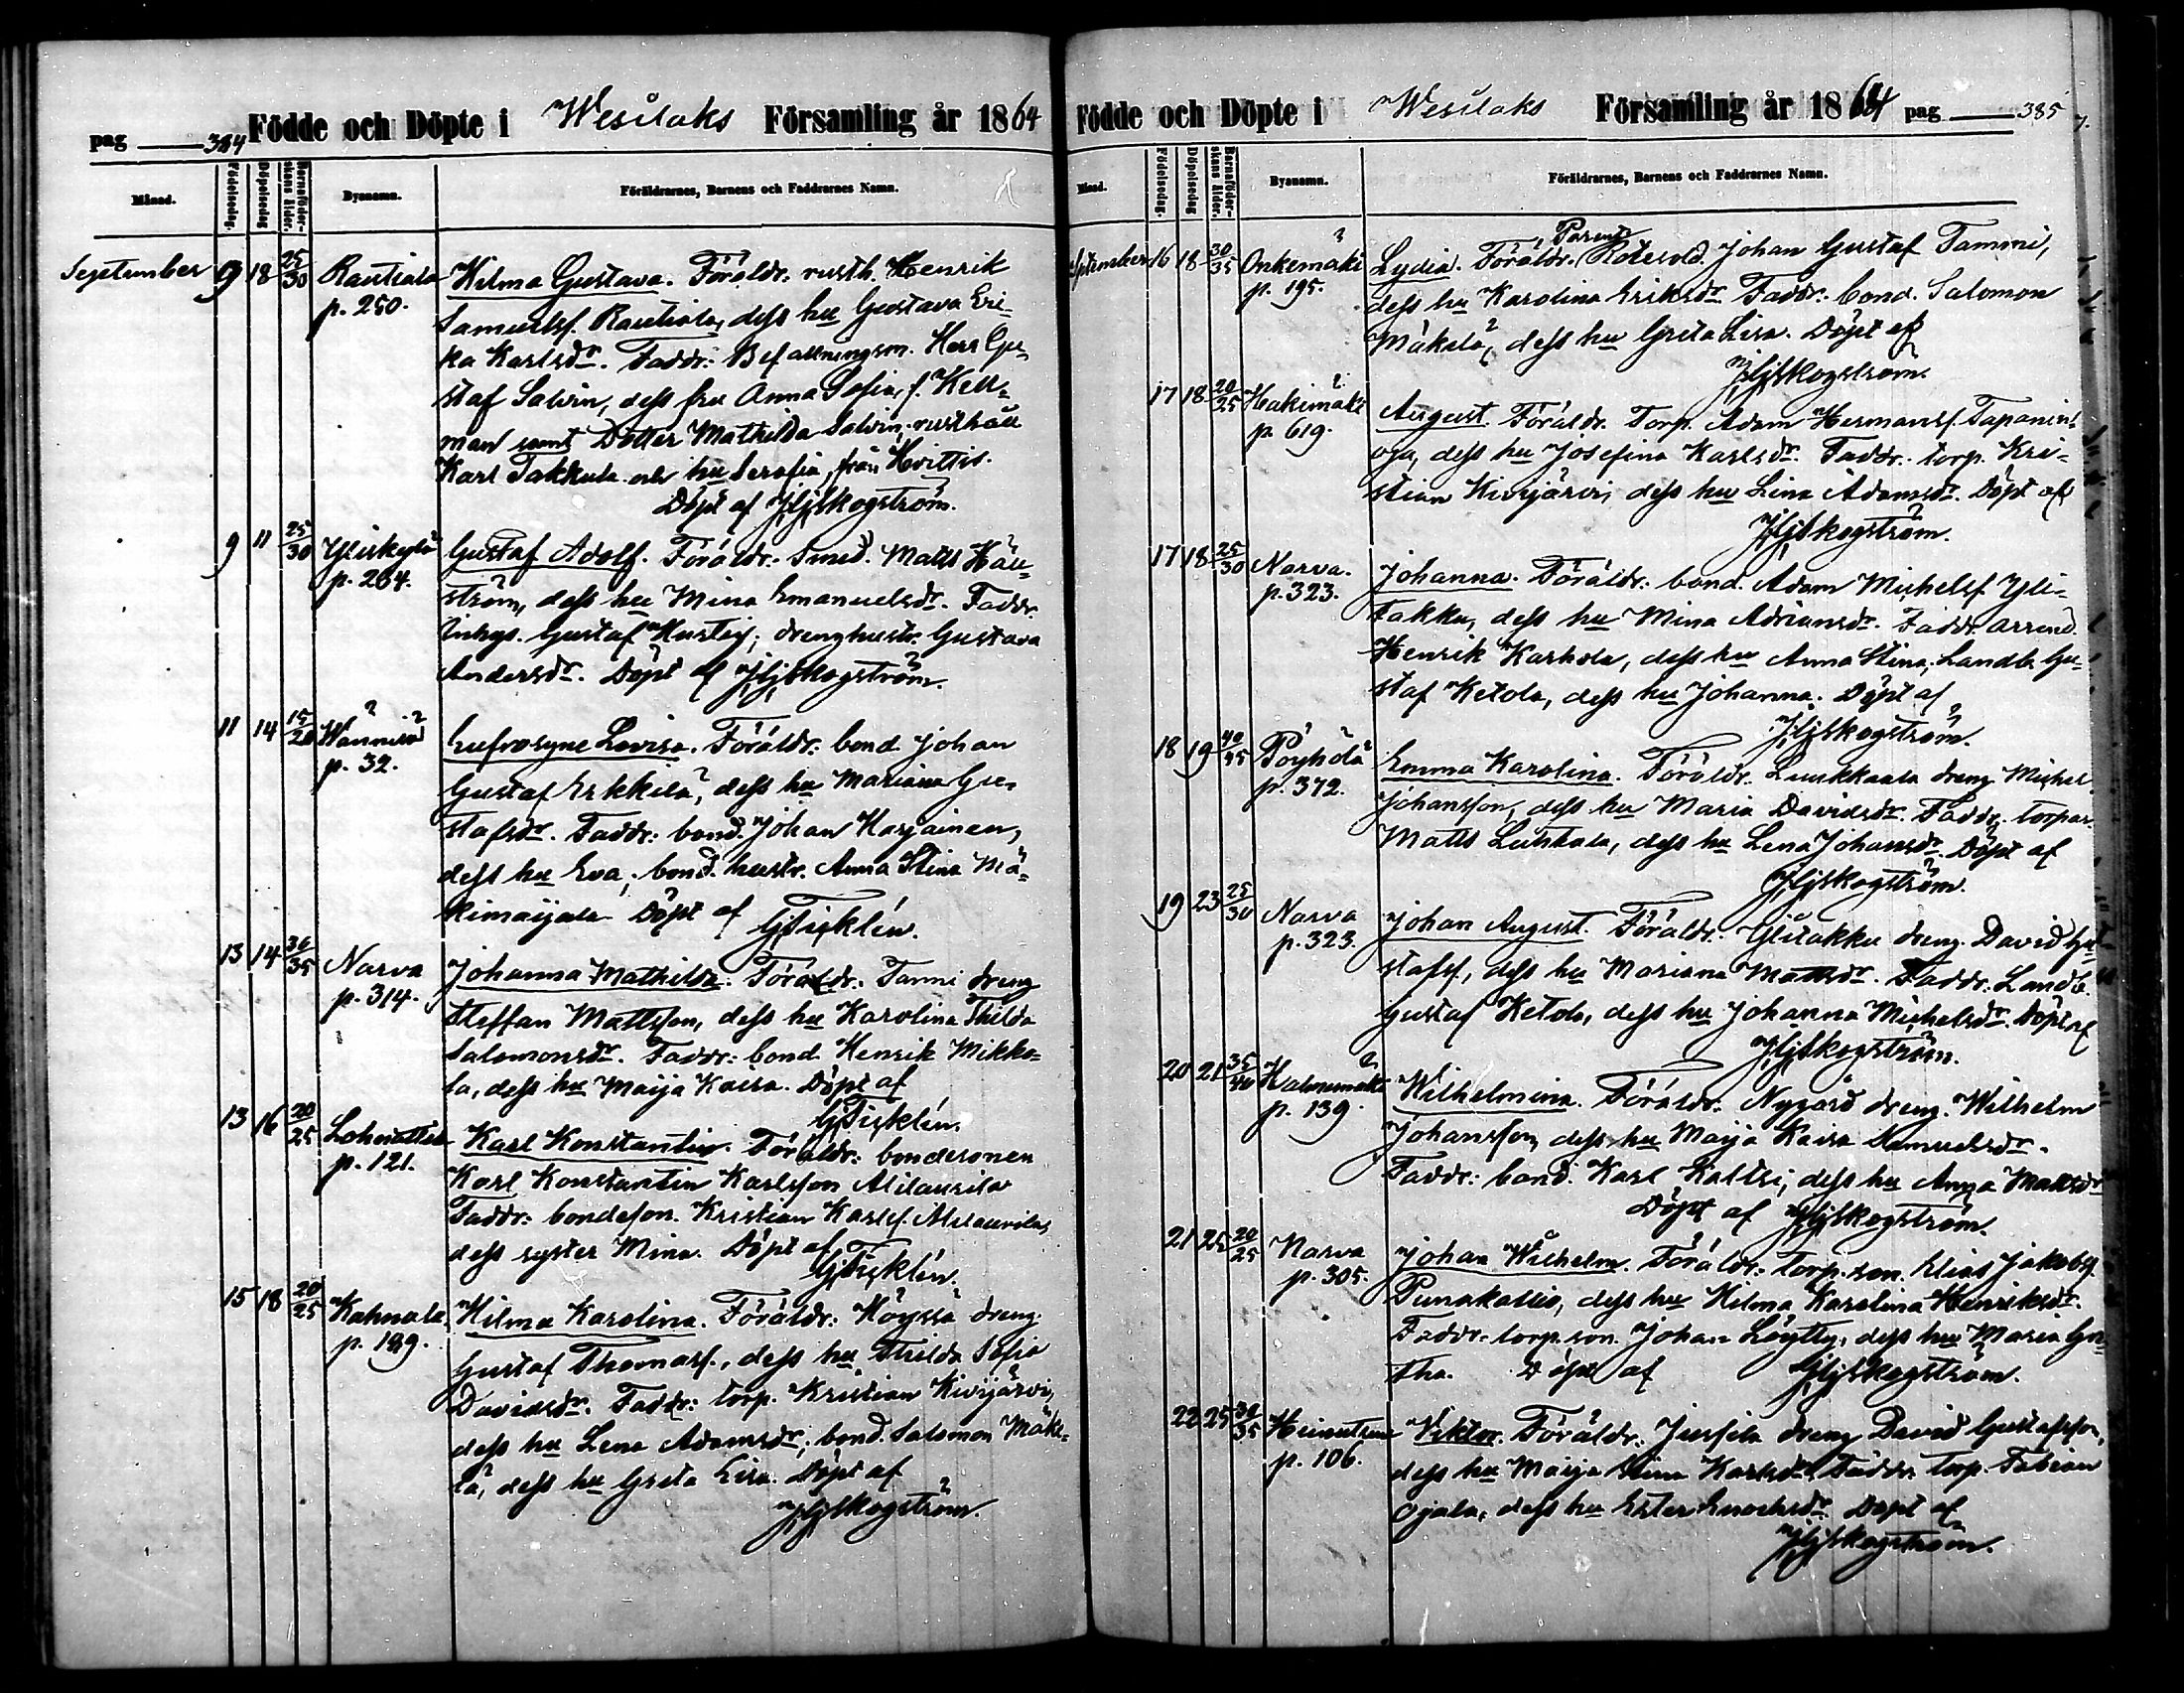 pag 384 Födde och Döpte i Wesilaks Församling år 1864
Månad. Födelsedag. Döpelsedag Barnaföderskans ålder. Bysnamn. Föräldrarnes, Barnens och Faddrarnes Namn.
September 9 18 25/30 Rautiala Hilma Gustava. Föräldr. rusth. Henrik
p. 250. Samuelsf. Rautiala, dess hu Gustava Eri-
ka Karlsdr. Faddr: Befallningsm. Herr Gu-
staf Salvin, dess fru Anna Sofia, f. Hell-
man samt Dotter Mathilda Salvin; rusthåll
Karl Takkula och hu Serafia, från Hvittis.
Döpt af Skogström.
9 11 25/30 Yliskylä Gustaf Adolf. Föräldr. Smed. Matts Häll-
p. 264. ström, dess hu Mina Emanuelsdr. Faddr.
Inhys. Gustaf; drenghustr. Gustava
Andersdr. Döpt af Skogström.
11 14 15/20 Wännilä Eufrosyne Lovisa. Föräldr: bond Johan
p. 32. Gustaf Erkkilä, dess hu Mariana Gu-
stafsdr. Faddr: bond. Johan Harjainen,
dess hu Eva; bond. hustr. Anna Stina Mä-
kimaijala Döpt af Ticklén.
13 14 30/35 Narva Johanna Mathilda. Föräldr: Tanni dreng
p. 314. Steffan Mattsson, dess hu Karolina Thilda
Salomonsdr. Faddr: bond Henrik Mikko-
la, dess hu Maija Kaisa. Döpt af
Ticklén.
13 16 20/25 Lohnattila Karl Konstantin. Föräldr: bondesonen
p. 121. Karl Konstantin Karlsson Alilaurila
Faddr: bondeson. Kristian Karlsf. Alilaurila,
dess syster Mina. Döpt af
Ticklén.
15 18 20/25 Kahnala Hilma Karolina. Föräldr: Höyssä dreng.
p. 189. Gustaf Thomasf., dess hu Thilda Sofia
Davidsdr. Faddr: torp. Kristian Kivijärvi,
dess hu Lena Adamsdr; bond. Salomon Mäke-
lä, dess hu Greta Lisa. Döpt af
Skogström.
Födde och Döpte i Wesilaks Församling år 1864 pag 385
Månad. Födelsedag. Döpelsedag Barnaföderskans ålder. Bysnamn. Föräldrarnes, Barnens och Faddrarnes Namn.
September 16 18 30/35 Onkemäki Lydia. Föräldr. Johan Gustaf Tammi,
p. 195. dess hu Karolina Eriksdr Faddr: bond. Salomon
Mäkelä, dess hu Greta Lisa. Döpt af
Skogström.
17 18 20/25 Hakimäki August. Föräldr. Torp. Adam Hermansf. Tapanin-
p. 619. oja, dess hu Josefina Karlsdr. Faddr: torp. Kri-
stian Kivijärvi, dess hu Lina Adamsdr. Döpt af
Skogström.
17 18 25/30 Narva. Johanna. Föräldr: bond. Adam Michelsf Yli-
p. 323. takku, dess hu Mina Adriansdr. Faddr: arrend.
Henrik Karhola, dess hu Anna Stina; Landb. Gu-
staf Ketola, dess hu Johanna. Döpt af
Skogström.
18 19 40/45 Pöyhölä Emma Karolina. Föräldr. Luukkaala dreng Michel
p. 372. Johansson, dess hu Maria Davidsdr. Faddr: torpar.
Matts Luhtala, dess hu Lena Johansdr. Döpt af
Skogström.
19 23 25/30 Narva Johan August. Föräldr: Ylitakku dreng. David Gu-
p. 323. stafsf, dess hu Mariana Mattsdr. Faddr: Landb.
Gustaf Ketola, dess hu Johanna Michelsdr. Döpt af
Skogström.
20 21 35/40 Wilhelmina. Föräldr. Nygård dreng. Wilhelm
p. 139. Johansson, dess hu Maija Kaisa Samuelsdr.
Faddr: bond. Karl Kaltsi; dess hu Anna Mattsdr
Döpt af Skogström.
21 25 20/25 Narva Johan Wilhelm. Föräldr: Torp. son. Elias Jakobsf.
p. 305. Punakallio, dess hu Hilma Karolina Henriksdr.
Faddr. torp. son. Johan Löytty, dess hu Maria Gu-
stha. Döpt af Skogström.
22 25 30/35 Viktor. Föräldr: Jussila dreng David Gustafsson,
p. 106. dess hu Maija Stina Karlsdr. Faddr. torp. Fabian
Ojala, dess hu Ester Enochsdr. Döpt af
Skogström.